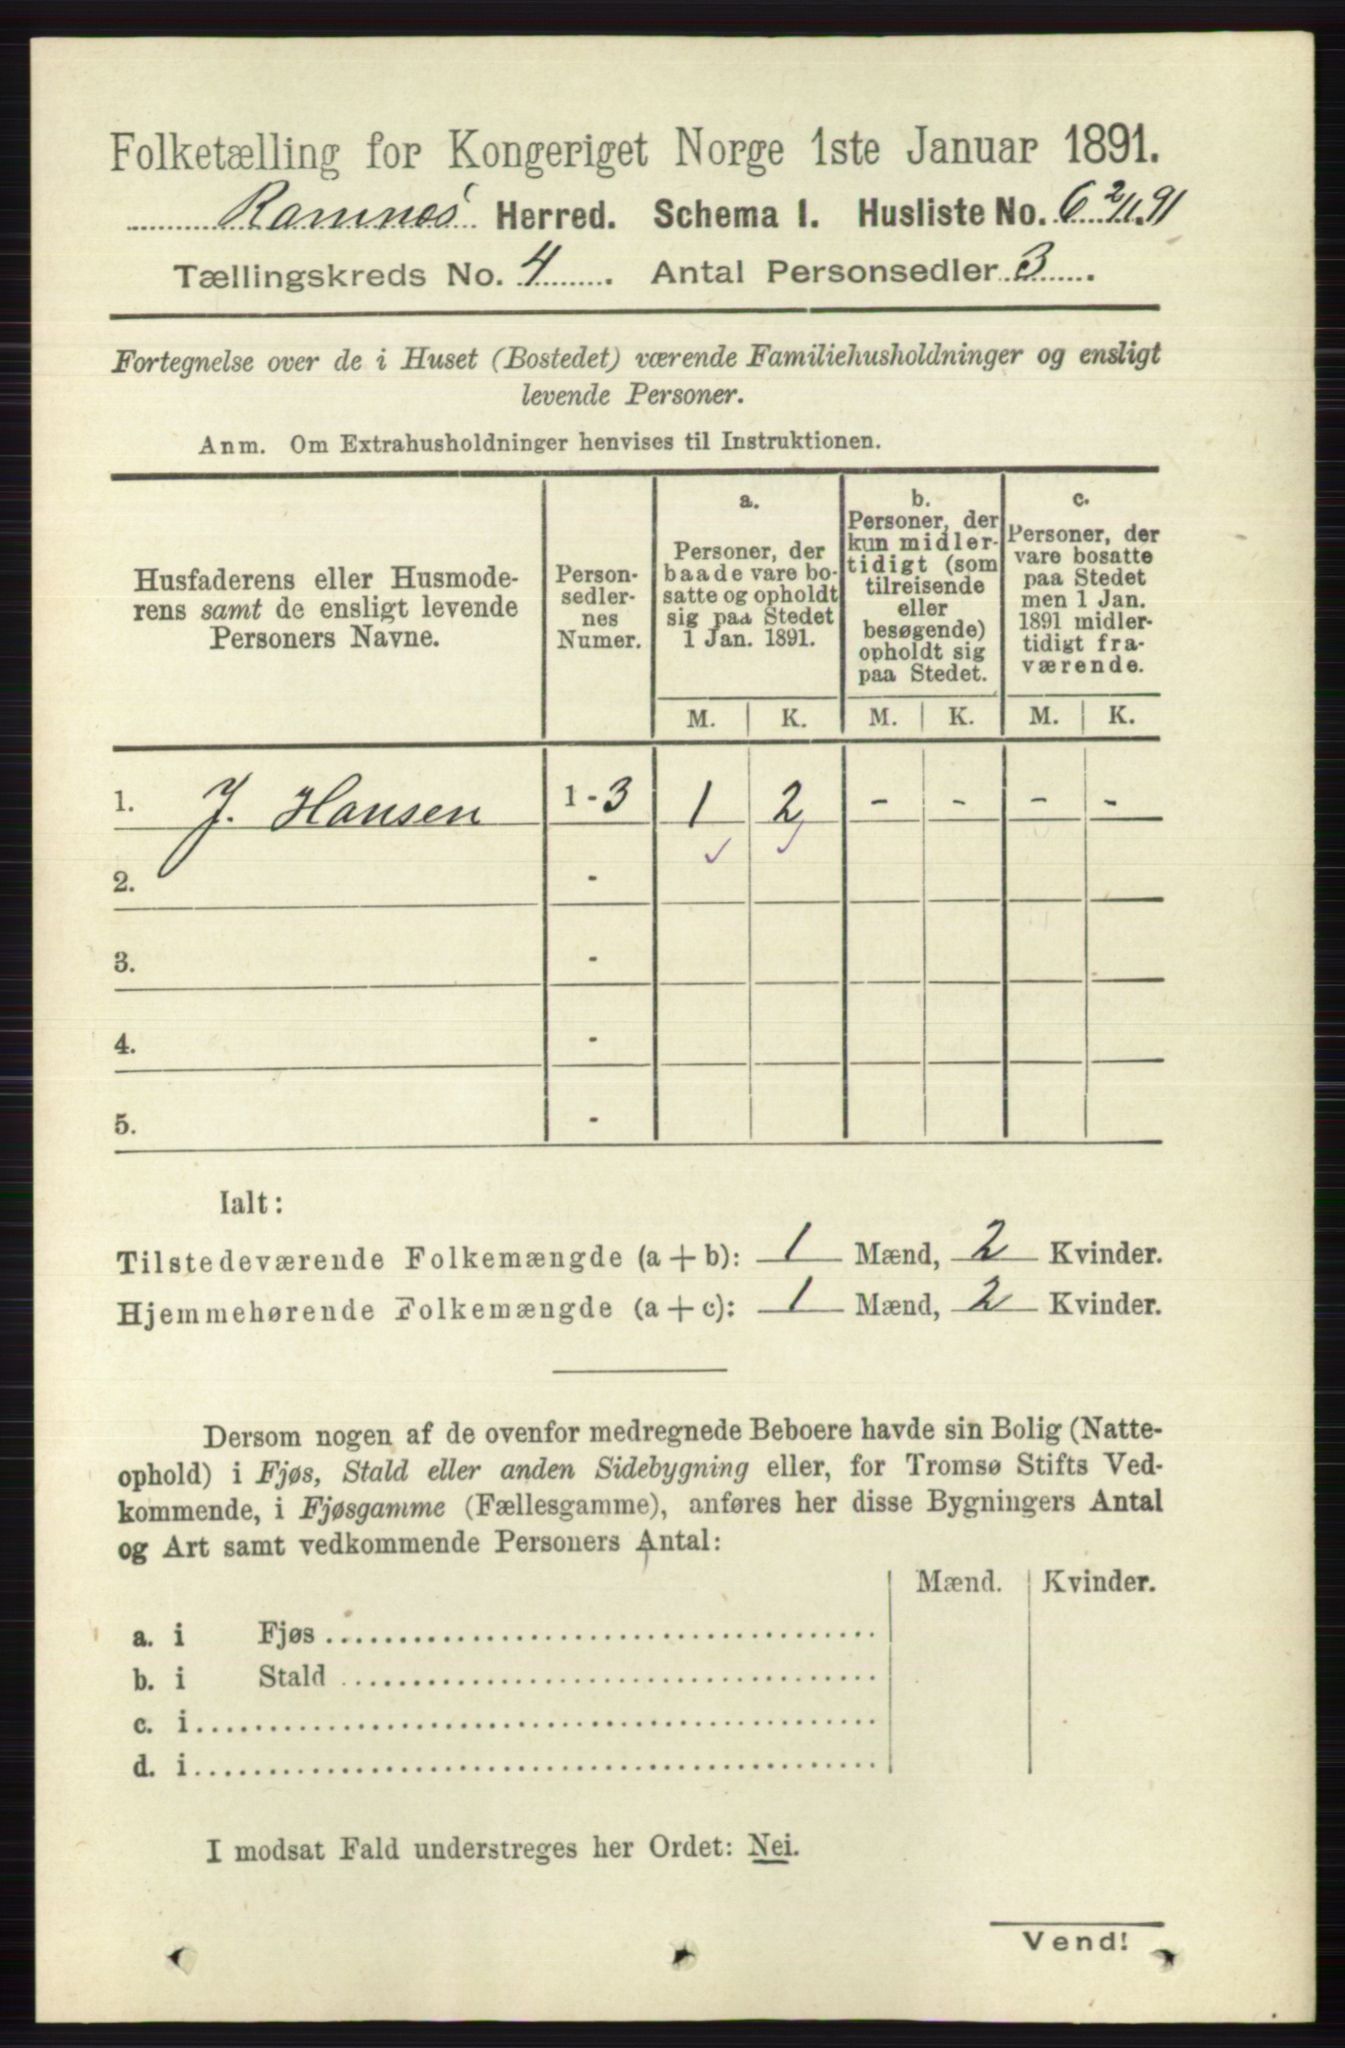 Folketælling for Kongeriget Norge 1ste Januar 1891.
Ramnes Herred. Schema I. Husliste No. 6 2/1 91
Tællingskreds No. 4 . Antal Personsedler 3 .
Fortegnelse over de i Huset (Bostedet) værende Familiehusholdninger og ensligt
levende Personer.
Anm. Om Extrahusholdninger henvises til Instruktionen.
Husfaderens eller Husmode-
rens samt de ensligt levende
Personers Navne.
Person-
sedler-
nes
Numer.
a.
Personer, der
baade vare bo-
satte og opholdt
sig paa Stedet
1 Jan. 1891.
b.
Personer, der
kun midler-
tidigt (som
tilreisende
eller
besøgende)
opholdt sig
paa Stedet.
c.
Personer, der
vare bosatte
paa Stedet
men 1 Jan.
1891 midler-
tidigt fra-
værende.
M. K. M. K. M. K.
1. J. Hansen 1 - 3 1 2 - - - -
2. -
3. -
4. -
5. -
Ialt:
Tilstedeværende Folkemængde (a + b): 1 Mænd, 2 Kvinder.
Hjemmehørende Folkemængde (a + c): 1 Mænd, 2 Kvinder.
Dersom nogen af de ovenfor medregnede Beboere havde sin Bolig (Natte-
ophold) i Fjøs, Stald eller anden Sidebygning eller, for Tromsø Stifts Ved-
kommende, i Fjøsgamme (Fællesgamme), anføres her disse Bygningers Antal
og Art samt vedkommende Personers Antal:
Mænd. Kvinder.
a. i Fjøs
b. i Stald
c. i
d. i
I modsat Fald understreges her Ordet: Nei.
Vend!